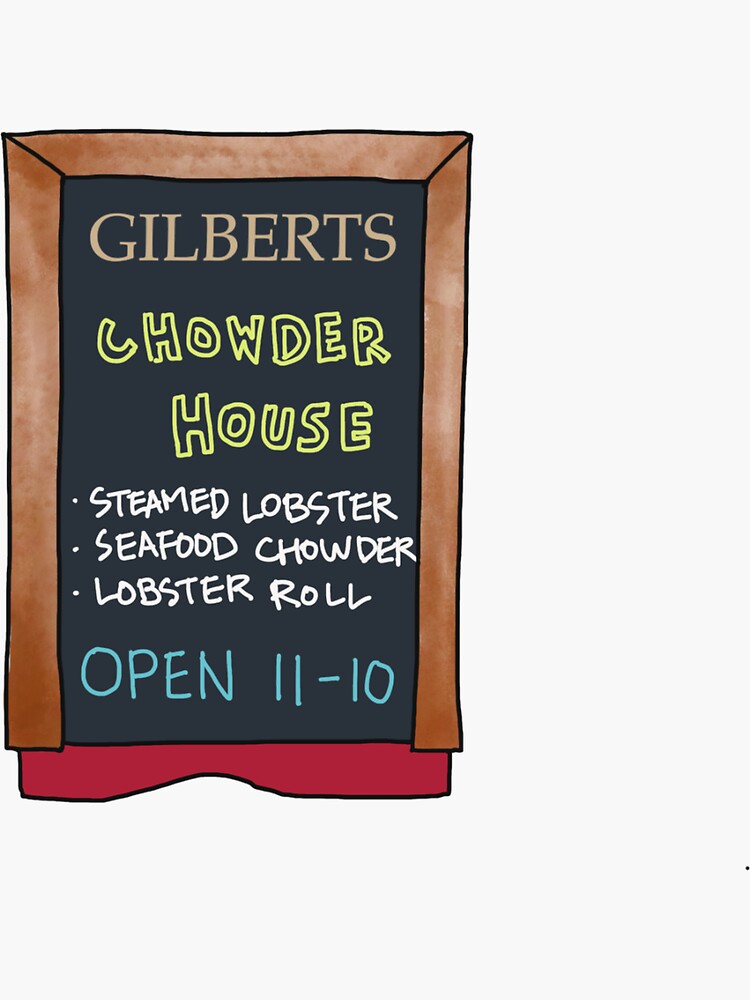 GILBERTS
CHOWDER
HOUSE
· STEAMED LOBSTER
· SEAFOOD CHOWDER
· LOBSTER ROLL
OPEN 11-10